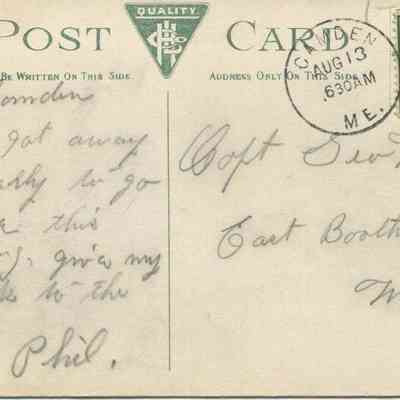 POST CARD
QUALITY
BE WRITTEN ON THIS SIDE
ADDRESS ONLY ON THIS SIDE
CAMDEN
AUG 13
630AM
ME.
Camden
got away
to go
this
give my
to the
Phil.
Capt Geo
East Booth